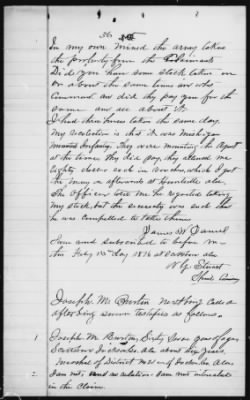 36
In my own mined the army takes
the property from the Claimant
Did you have some stock taken on
or about the same time and who
Command and did they pay you for the
same and all about it.
I had three horses taken the same day,
My recolection is that it was Michigan
Mounted Infantry, They were mounting the Regiment
at the time, They did pay, they allowed me
Eighty dollars each in vouchers, which I got
the money on afterwards at Huntsville Ala.
The officer told me he regreted taking
my stock, but the necessity was such that
he was compelled to take them
James W Daniel
Sworn and subscribed to before
me this Feby 15 day 1876 at
N G Stewart
Special
Joseph M Burton next being called
after being sworn testifies as follows.
1 Joseph M Burton, Sixty years of age
Ala
Marshal of District
2. I am not, and no relation I am not interested
in the Claim.